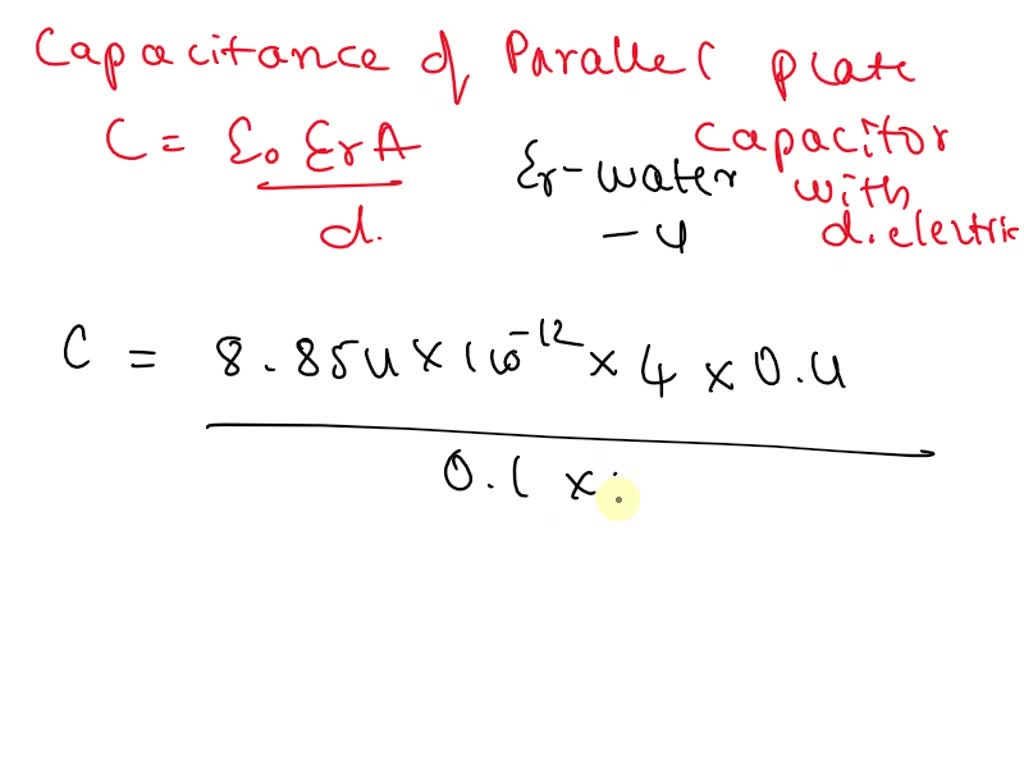 Capacitance of Parallel plate
capacitor
with
dielectric
C = ε₀ εr A
d.
εr - water
- 4
C = 8.854 × 10⁻¹² × 4 × 0.4
0.1 ×